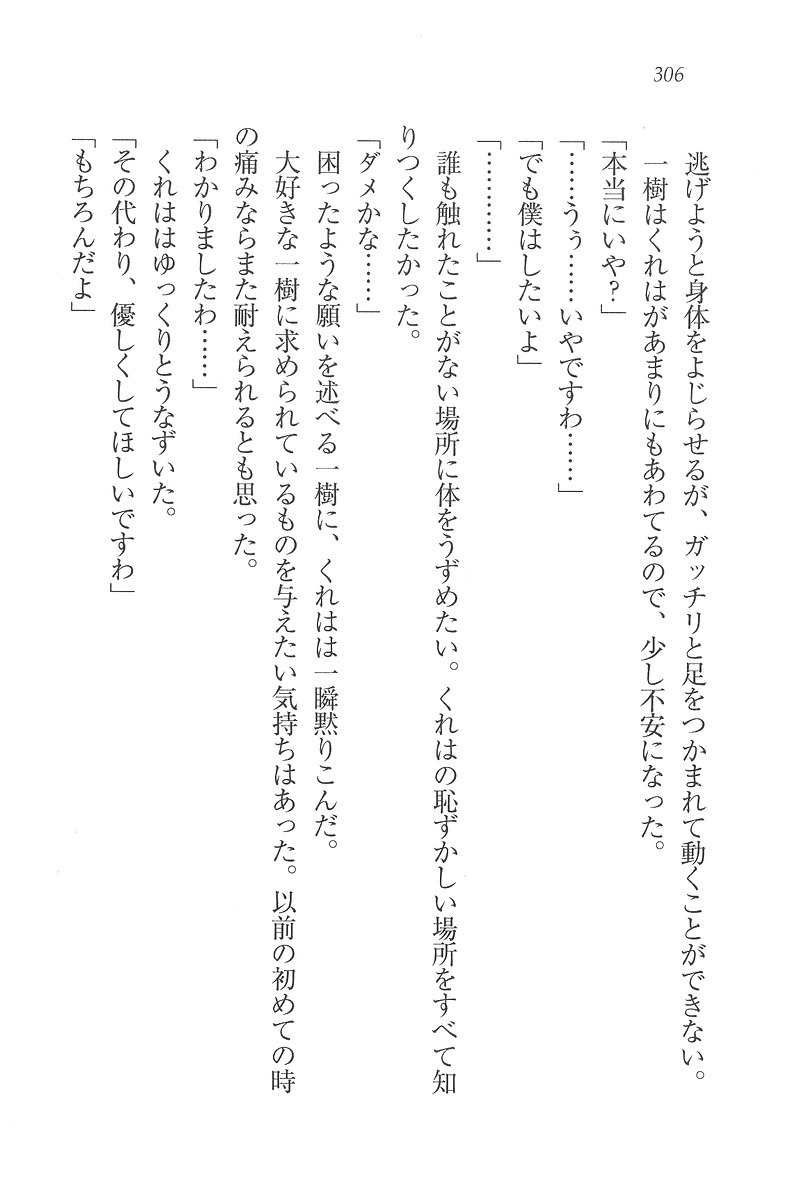 306
逃げようと身体をよじらせるが、ガッチリと足をつかまれて動くことができない。
一樹はくれはがあまりにもあわてるので、少し不安になった。
「本当にいや？」
「……うぅ……いやですわ……」
「でも僕はしたいよ」
「…………」
誰も触れたことがない場所に体をうずめたい。くれはの恥ずかしい場所をすべて知
りつくしたかった。
「ダメかな……」
困ったような願いを述べる一樹に、くれはは一瞬黙りこんだ。
大好きな一樹に求められているものを与えたい気持ちはあった。以前の初めての時
の痛みならまた耐えられるとも思った。
「わかりましたわ……」
くれははゆっくりとうなずいた。
「その代わり、優しくしてほしいですわ」
「もちろんだよ」